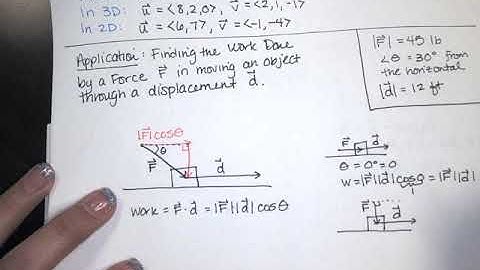 In 3D: u⃗ = <8,2,0>, v⃗ = <2,1,-1>
In 2D: u⃗ = <6,7>, v⃗ = <-1,-4>
Application: Finding the Work Done
by a Force F⃗ in moving an object
through a displacement d⃗.
|F⃗| = 45 lb
∠θ = 30° from
the horizontal
|d⃗| = 12 ft
|F⃗|cosθ
θ
F⃗
d⃗
work = F⃗·d⃗ = |F⃗||d⃗|cosθ
F⃗ d⃗
θ = 0° = 0
W = |F⃗||d⃗|cosθ = |F⃗||d⃗|
1
F⃗ d⃗